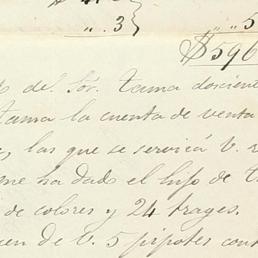 „ „ 3 „ „ 5
$596
de Sor. tama dociene
tama la cuenta de venta
las que se servirá V.
ne ha dado el hijo de
de colores y 24 trages.
en de V. 5 pipotes cont